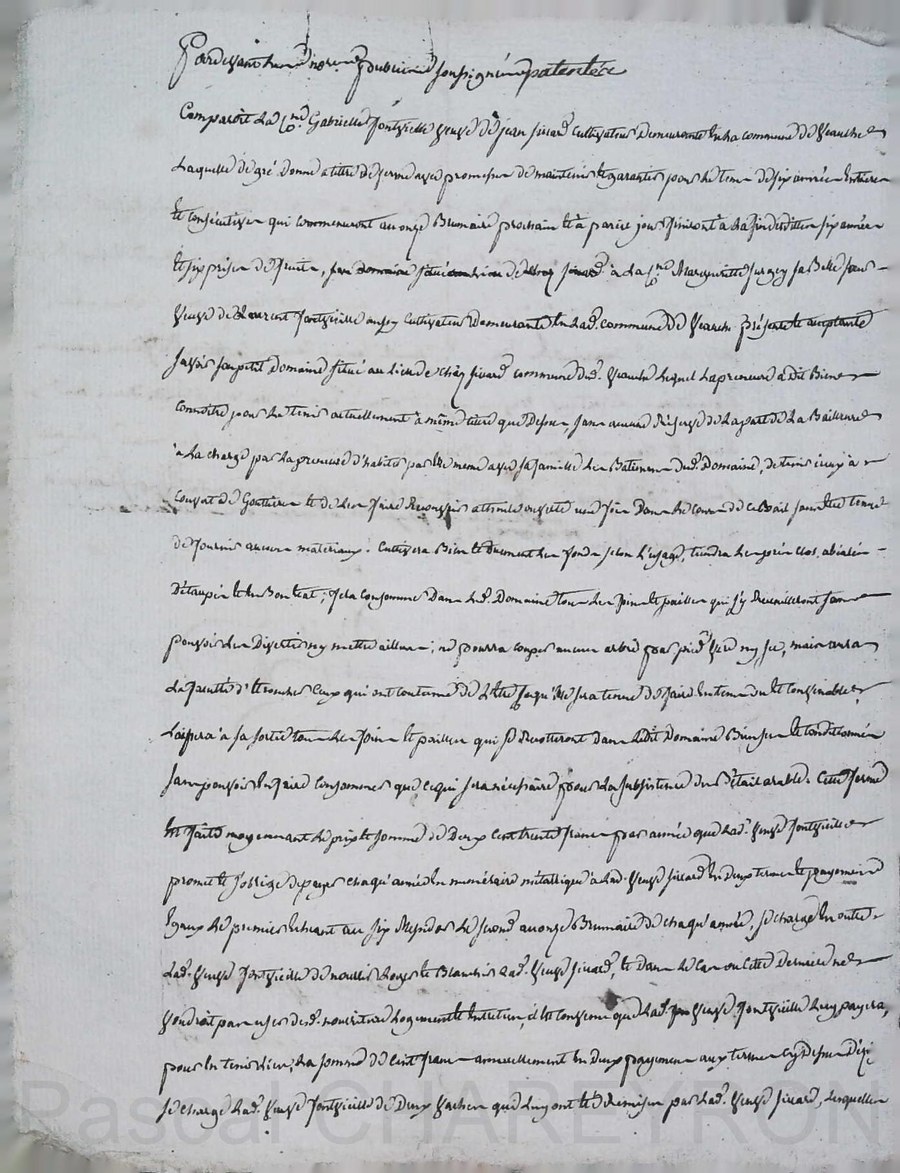 Pardevant le notaire public soussigné patenté
Comparoit La Cne. Gabrielle Fontvieille veuve de jean sicard cultivateur demeurante en la commune de
Laquelle de gré donne a titre de ferme avec promesse de maintenir et garantir pour le tems de six années entieres
et consécutives qui commenceront au onze Brumaire prochain et à pareil jour finiront à la fin desdites six années
et six prises de fruits, à la Cne. Marguerite sa Belle soeur
veuve de Laurent Fontvieille cultivateur demeurante en lad. commune de présente et acceptante
savoir son petit domaine situé au lieu de sicard commune dud. Lequel la preneuse a dit Bien
connoitre pour le tenir actuellement à même titre que dessus, sans aucune réserve de la part de La Bailleuse
à La charge par la preneuse d'habiter par elle même avec sa famille les Batimens dud. Domaine, de tenir iceux à
couvert de Goutières et de les faire recouvrir à taille ouverte une fois dans le cours de ce bail sans être tenue
de fournir aucuns materiaux. Cultivera Bien et duement les fonds selon l'usage, tiendra les prés clos, abialés
détaupés et en Bon état; fera consommer dans led. Domaine tous les foins et pailles qui s'y recueilleront sans
pouvoir les divertir ny mettre ailleurs; ne pourra couper aucuns arbres par pied verd ny sec, mais aura
La faculté d'ébrancher ceux qui ont coutume de L'être jusqu'elle sera tenue de faire en tems du et convenable
Laissera à sa sortie tous les foins et pailles qui se recolteront dans ledit Domaine Bien secs et conditionnés
sans pouvoir en faire consommer que ce qui sera nécéssaire pour la subsistence du Bétail arable. Cette ferme
est faite moyennant le prix et somme de Deux Cent trente francs par année que lad. veuve Fontvieille
promet et s'oblige de payer chaqu'année en numéraire métallique à lad. veuve sicard en deux termes et payemens
Egaux Le premier echeant au six Messidor Le second au onze Brumaire de chaqu'année, se charge en outre
Lad. veuve Fontvieille de nourrir Loger et Blanchir lad. veuve sicard, et dans le cas ou cette derniere ne
voudroit pas user desd. nourriture Logement et Entretien, il est convenu que lad. veuve Fontvieille Luy payera,
pour en tenir Lieu, La somme de Cent francs annuellement en deux payemens aux termes cy dessus
se charge lad. veuve Fontvieille de Deux vaches que luy ont été remises par lad. veuve sicard, Lesquelles
Pascal CHAREYRON